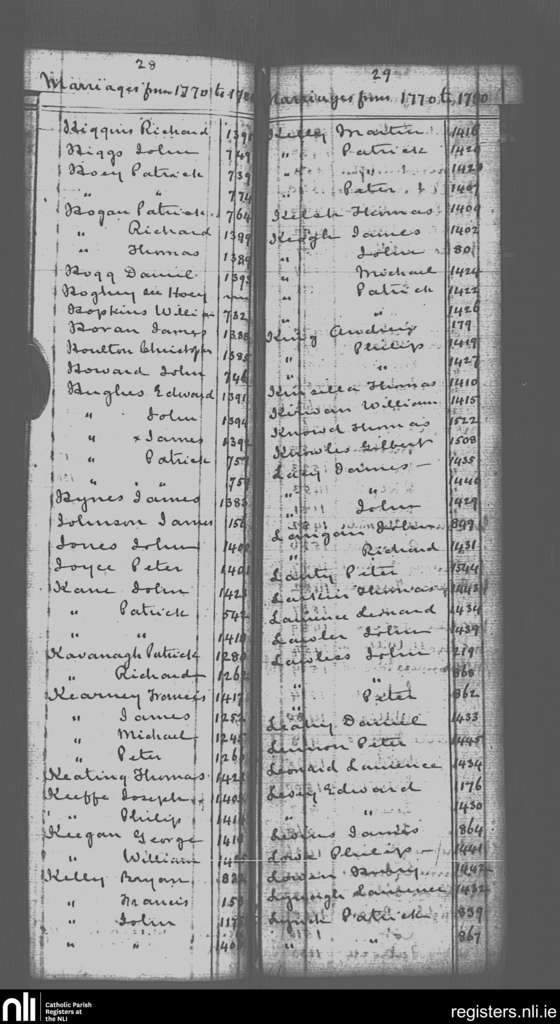 28
Marriages from 1770 to 17
Higgins Richard 139
Higgs John 749
Hoey Patrick 739
" " 774
Hogan Patrick 764
" Richard 1389
" Thomas 1389
Hogg Daniel 1393
Hoghey see Hoey
Hopkins William 732
Horan James 1388
Houlton Christopher 1385
Howard John 746
Hughes Edward 1391
" John 1394
" x James 1392
" Patrick 757
" " 759
Hynes James 1383
Johnson James 156
Jones John 1400
Joyce Peter 1401
Kane John 1423
" Patrick 542
" " 1410
Kavanagh Patrick 1280
" Richard 1262
Kearney Francis 1417
" James 1252
" Michael 1245
" Peter 1260
Keating Thomas 1422
Keeffe Joseph 1403
" Philip 1416
Keegan George 1414
" William 1405
Kelly Bryan 822
" Francis 150
" John 1175
" " 1403
29
Marriages from 1770 to 1780
Kelly Martin 1416
" Patrick 1420
" " 1423
" Peter 1407
Kelsh Thomas 1409
Keogh James 1402
" John 801
" Michael 1424
" Patrick 1422
" " 1426
King Andrew 179
" Philip 1419
" " 1427
Kinsella Thomas 1410
Kirwan William 1415
Knowd Thomas 1522
Knowles Gilbert 1508
Lacy James 1435
" " 1440
" John 1429
Langan John 899
" Richard 1431
Lanty Peter 1544
Larkin Thomas 1443
Laurence Lenard 1434
Lawler John 1439
Lawless John 219
" " 868
" Peter 862
Leahy Daniel 1433
Lennon Peter 1445
Leonard Laurence 1434
Levey Edward 1176
" " 1430
James 864
Philip 1441
1442
Laurence 1432
Lynch Patrick 859
" " 867
nli
Catholic Parish
Registers at
the NLI
registers.nli.ie